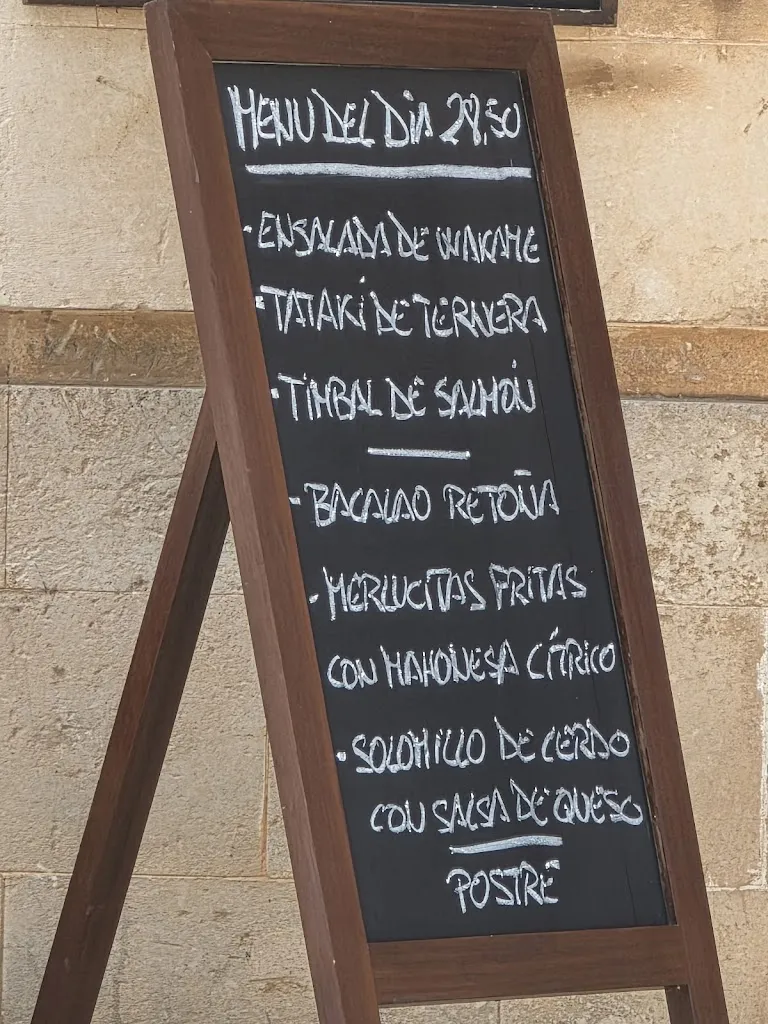 MENU DEL DIA 28,50
·ENSALADA DE WAKAME
·TATAKÍ DE TERNERA
·TIMBAL DE SALMÓN
·BACALAO RETOÑA
·MERLUCITAS FRITAS
CON MAHONESA CÍTRICO
·SOLOMILLO DE CERDO
CON SALSA DE QUESO
POSTRE